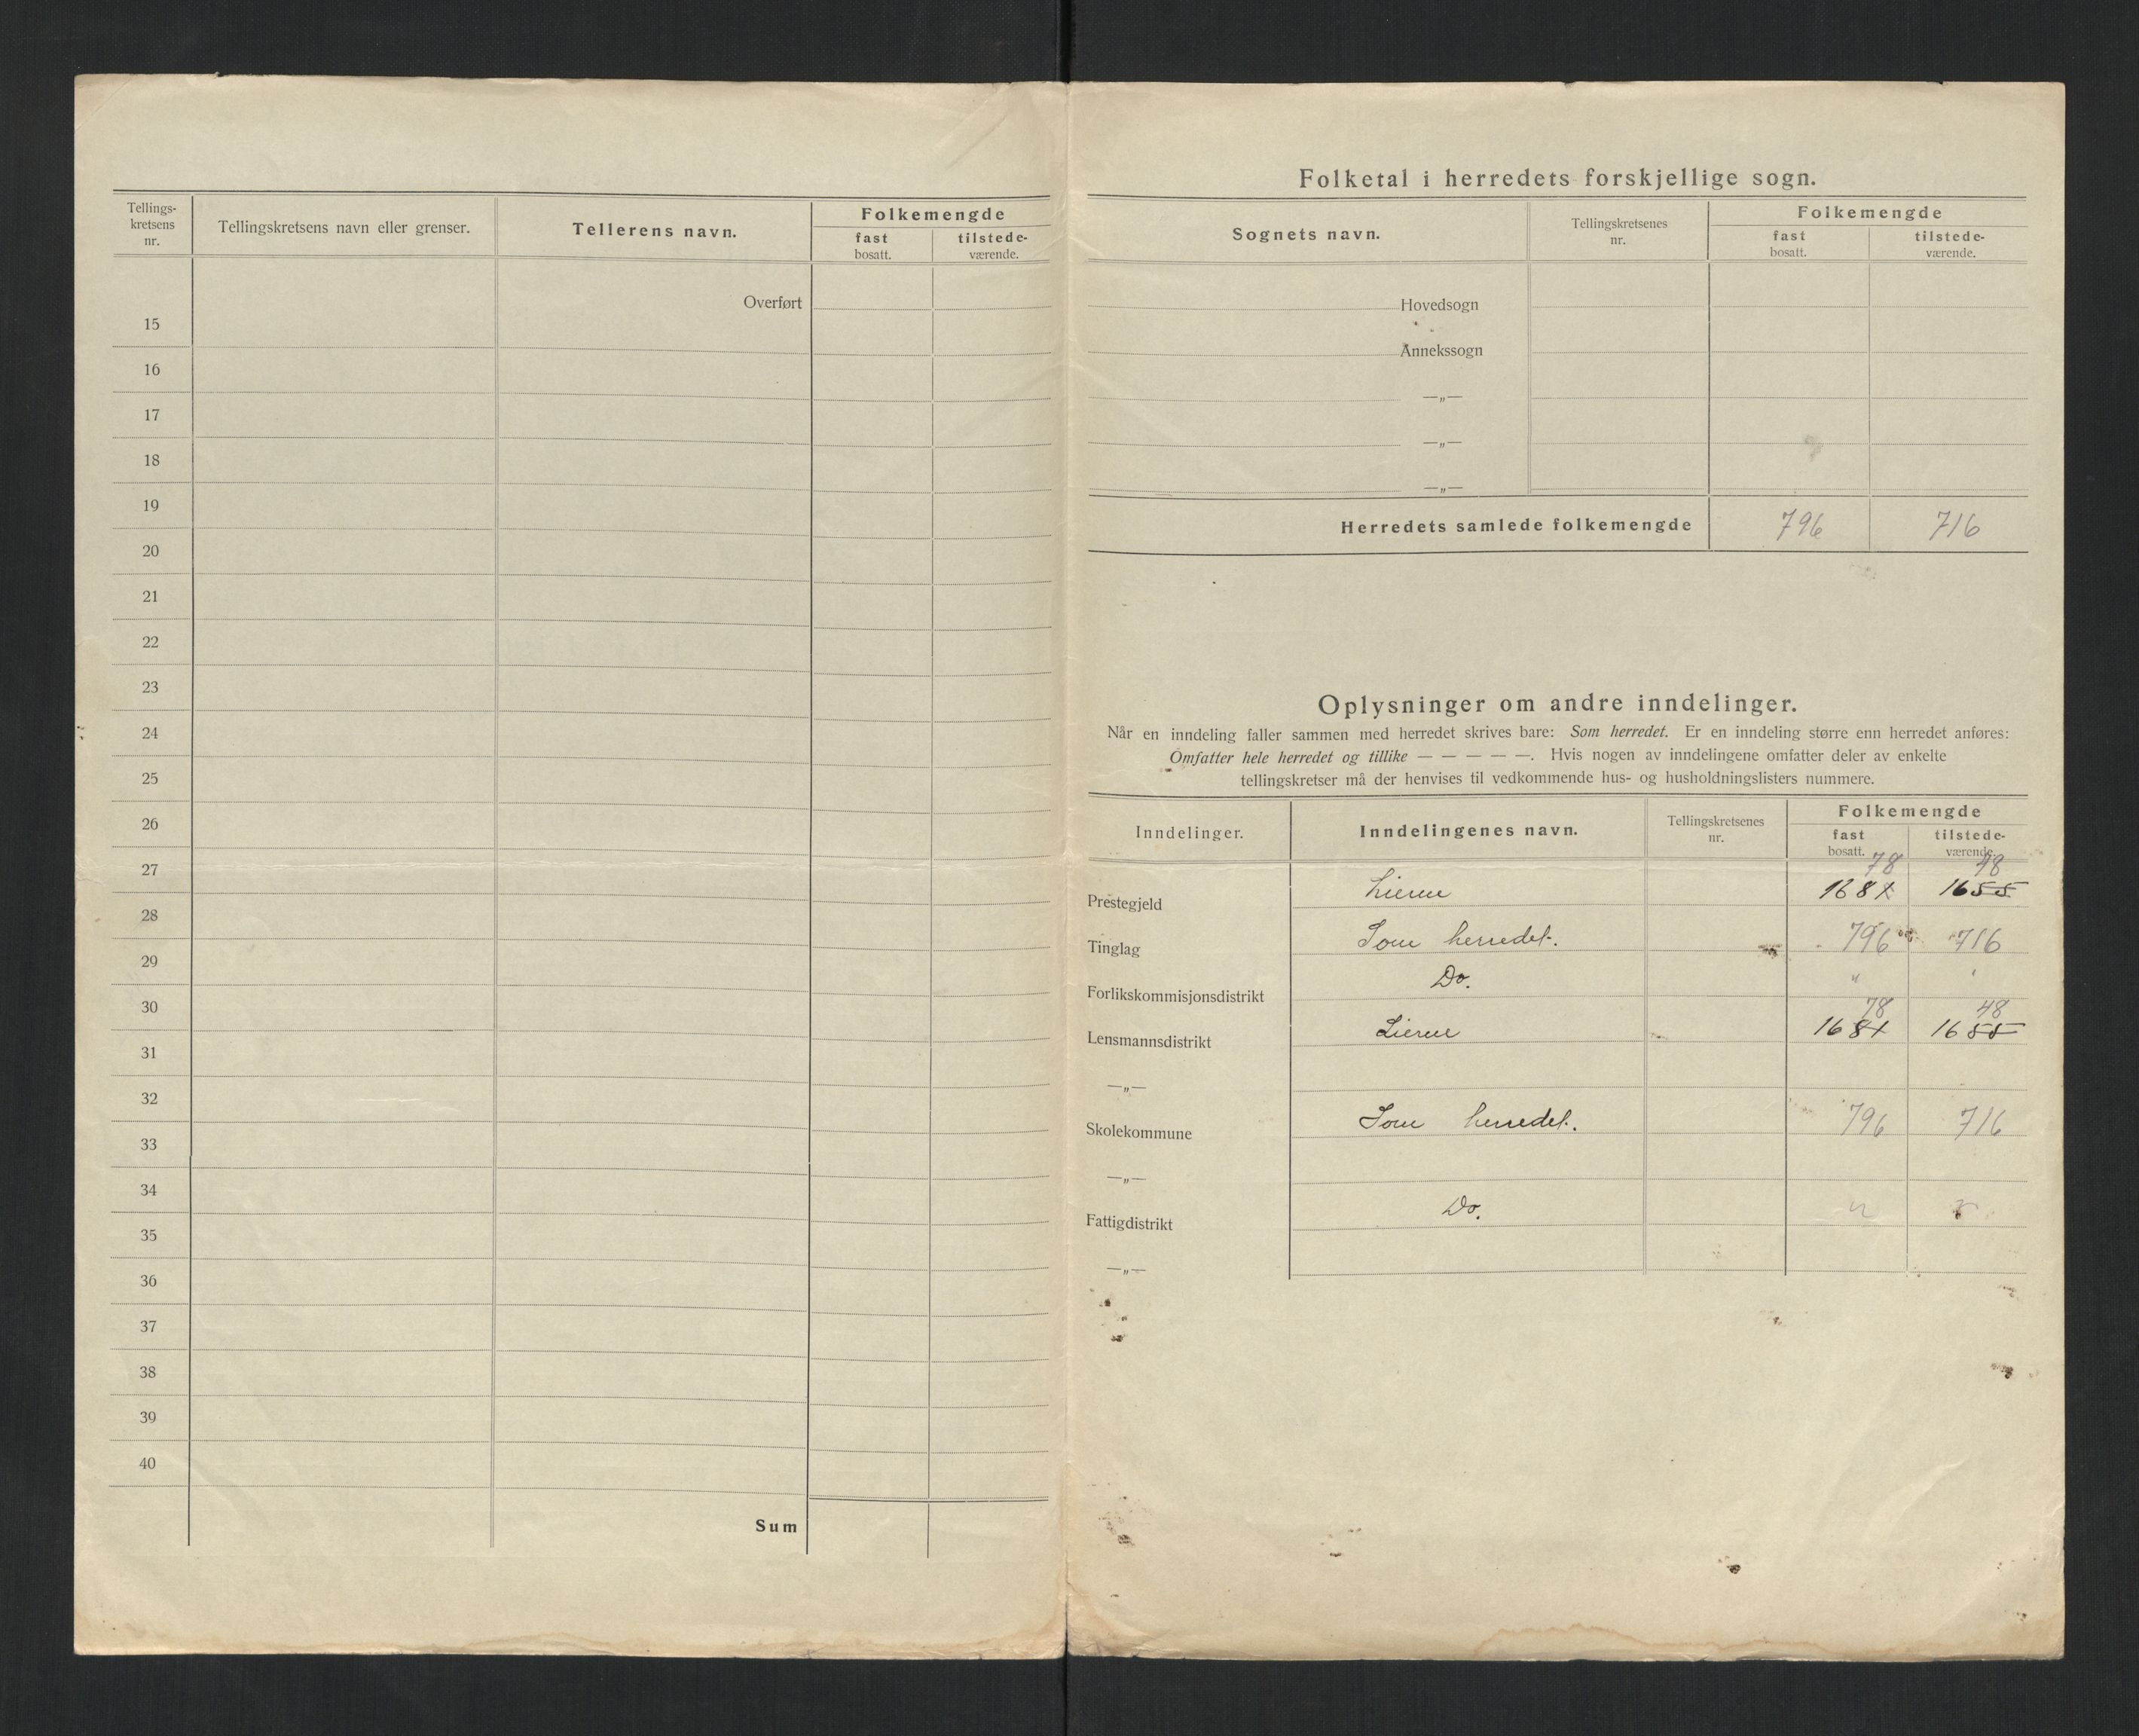 Tellings-
kretsens
nr.
Tellingskretsens navn eller grenser.
Tellerens navn.
Folkemengde
fast
bosatt.
tilstede-
værende.
Overført
15
16
17
18
19
20
21
22
23
24
25
26
27
28
29
30
31
32
33
34
35
36
37
38
39
40
Sum
Folketal i herredets forskjellige sogn.
Sognets navn.
Tellingskretsenes
nr.
Folkemengde
fast
bosatt.
tilstede-
værende.
Hovedsogn
Annekssogn
—„—
—„—
—„—
Herredets samlede folkemengde 796 716
Oplysninger om andre inndelinger.
Når en inndeling faller sammen med herredet skrives bare: Som herredet. Er en inndeling større enn herredet anføres:
Omfatter hele herredet og tillike — — — — —. Hvis nogen av inndelingene omfatter deler av enkelte
tellingskretser må der henvises til vedkommende hus- og husholdningslisters nummere.
Inndelinger.
Inndelingenes navn.
Tellingskretsenes
nr.
Folkemengde
fast
bosatt.
tilstede-
værende.
78 48
Prestegjeld Lierne 1681 1655
Tinglag Som herredet. 796 716
Forlikskommisjonsdistrikt Do. "
78 48
Lensmannsdistrikt Lierne 1681 1655
—„—
Skolekommune Som herredet. 796 716
—„—
Fattigdistrikt Do. "
—„—